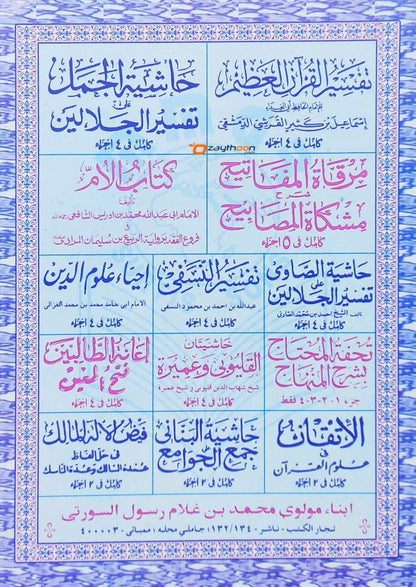 تفسير القرآن العظيم
للامام الحافظ أبو الفداء
اسماعيل بن كثير القرشي الدمشقي
كامل فى ٤ اجزاء
حاشية الجمل
على
تفسير الجلالين
كامل فى ٤ اجزاء
ozaythoon
مرقاة المفاتيح
شرح
مشكاة المصابيح
كامل فى ٥ اجزاء
كتاب الأم
تأليف
الامام ابى عبد الله محمد بن ادريس الشافعى
فى
فروع الفقه برواية الربيع بن سليمان المرادى
حاشية الصاوى
على
تفسير الجلالين
الشيخ احمد بن محمد الصاوى
كامل فى ٤ اجزاء
تفسير النسفى
عبد الله بن احمد بن محمود النسفى
كامل فى ٤ اجزاء
إحياء علوم الدين
الامام ابى حامد محمد بن محمد الغزالى
كامل فى ٤ اجزاء
تحفة المحتاج
بشرح المنهاج
جزء ١-٢-٣-٤ فقط
حاشيتان
القليوبى وعميرة
شيخ شهاب الدين قليوبى و شيخ عميرة
كامل فى ٤ اجزاء
إعانة الطالبين
فتح المعين
كامل فى ٤ اجزاء
الإتقان
فى
علوم القرآن
كامل فى ٢ اجزاء
حاشية البنانى
على
جمع الجوامع
كامل فى ٢ اجزاء
فيض الإله المالك
فى حل الفاظ
عمدة السالك وعدة الناسك
كامل فى ٢ اجزاء
ابناء مولوى محمد بن غلام رسول السورتى
تجار الكتب - ناشر - ١٣٢/١٣٤ : جاملي محله : ممبائى - ٤٠٠٠٠٣